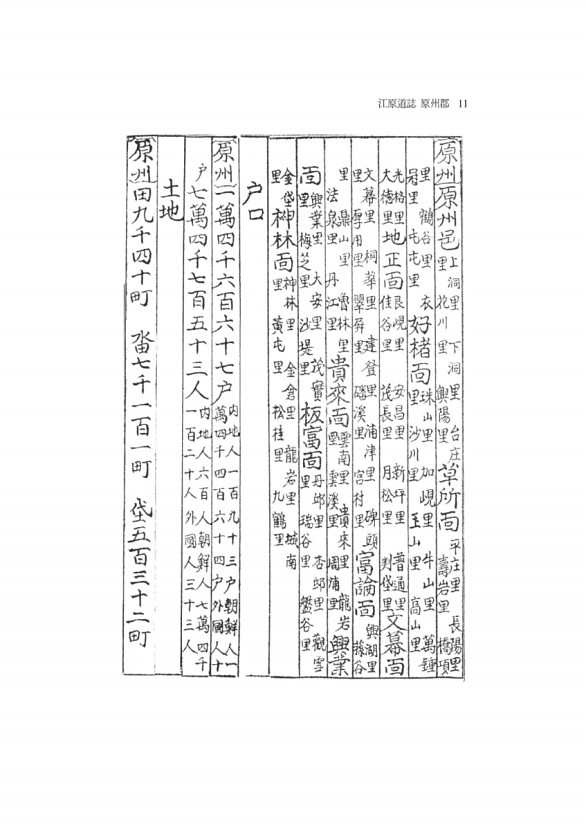 江原道誌 原州郡 11
原州 原州邑 上洞里 下洞里 台庄里 花川里 興陽里 草所面 平庄里 長陽里 壽岩里 橋項
里 鶴谷里 衣冠里 屯屯里 好楮面 珠山里 加峴里 牛山里 萬鍾里 沙川里 玉山里 高山里
光格里 大德里 地正面 艮峴里 安昌里 新坪里 普通里 佳谷里 茂長里 月松里 判垈里 文幕面
文幕里 桐華里 建登里 浦津里 碑頭里 厚用里 翠屏里 磻溪里 宮村里 富論面 興湖里 蓀谷
里 鼎山里 魯林里 法泉里 丹江里 貴來面 雲南里 貴來里 龍岩里 雲溪里 周浦里 興業
面 興業里 大安里 茂實里 梅芝里 沙堤里 板富面 丹邱里 杏邱里 觀雪里 瑞谷里 盤谷里
金垈里 神林面 神林里 金倉里 龍岩里 城南里 黃屯里 松桂里 九鶴里
戶口
原州 一萬四千六百六十七戶 內地人一百九十三戶朝鮮人一萬四千四百六十四戶外國人十
戶 七萬四千七百五十三人 內地人六百人朝鮮人七萬四千一百二十人外國人三十三人
土地
原州 田九千四十町 畓七千一百一町 垈五百三十二町